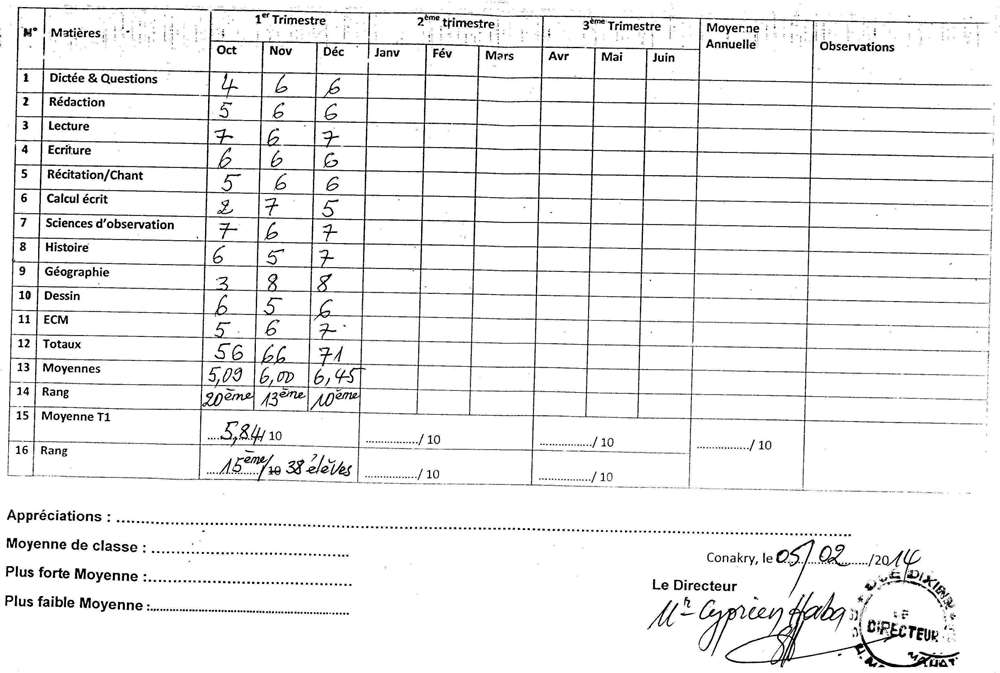 N° Matières 1er Trimestre 2ème trimestre 3ème Trimestre Moyenne Annuelle Observations
Oct Nov Déc Janv Fév Mars Avr Mai Juin
1 Dictée & Questions 4 6 6
2 Rédaction 5 6 6
3 Lecture 7 6 7
4 Ecriture 6 6 6
5 Récitation/Chant 5 6 6
6 Calcul écrit 2 7 5
7 Sciences d'observation 7 6 7
8 Histoire 6 5 7
9 Géographie 3 8 8
10 Dessin 6 5 6
11 ECM 5 6 7
12 Totaux 56 66 71
13 Moyennes 5,09 6,00 6,45
14 Rang 20ème 13ème 10ème
15 Moyenne T1 5,84/10 ............../ 10 ............../ 10 ............../ 10
16 Rang 15ème/10 38 élèves ............../ 10 ............../ 10
Appréciations : ..............................
Moyenne de classe : ..............................
Conakry, le 05/02/2014
Plus forte Moyenne :..............................
Le Directeur
Plus faible Moyenne :..............................
Mr Cyprien Haba
DIXINN
LE
DIRECTEUR